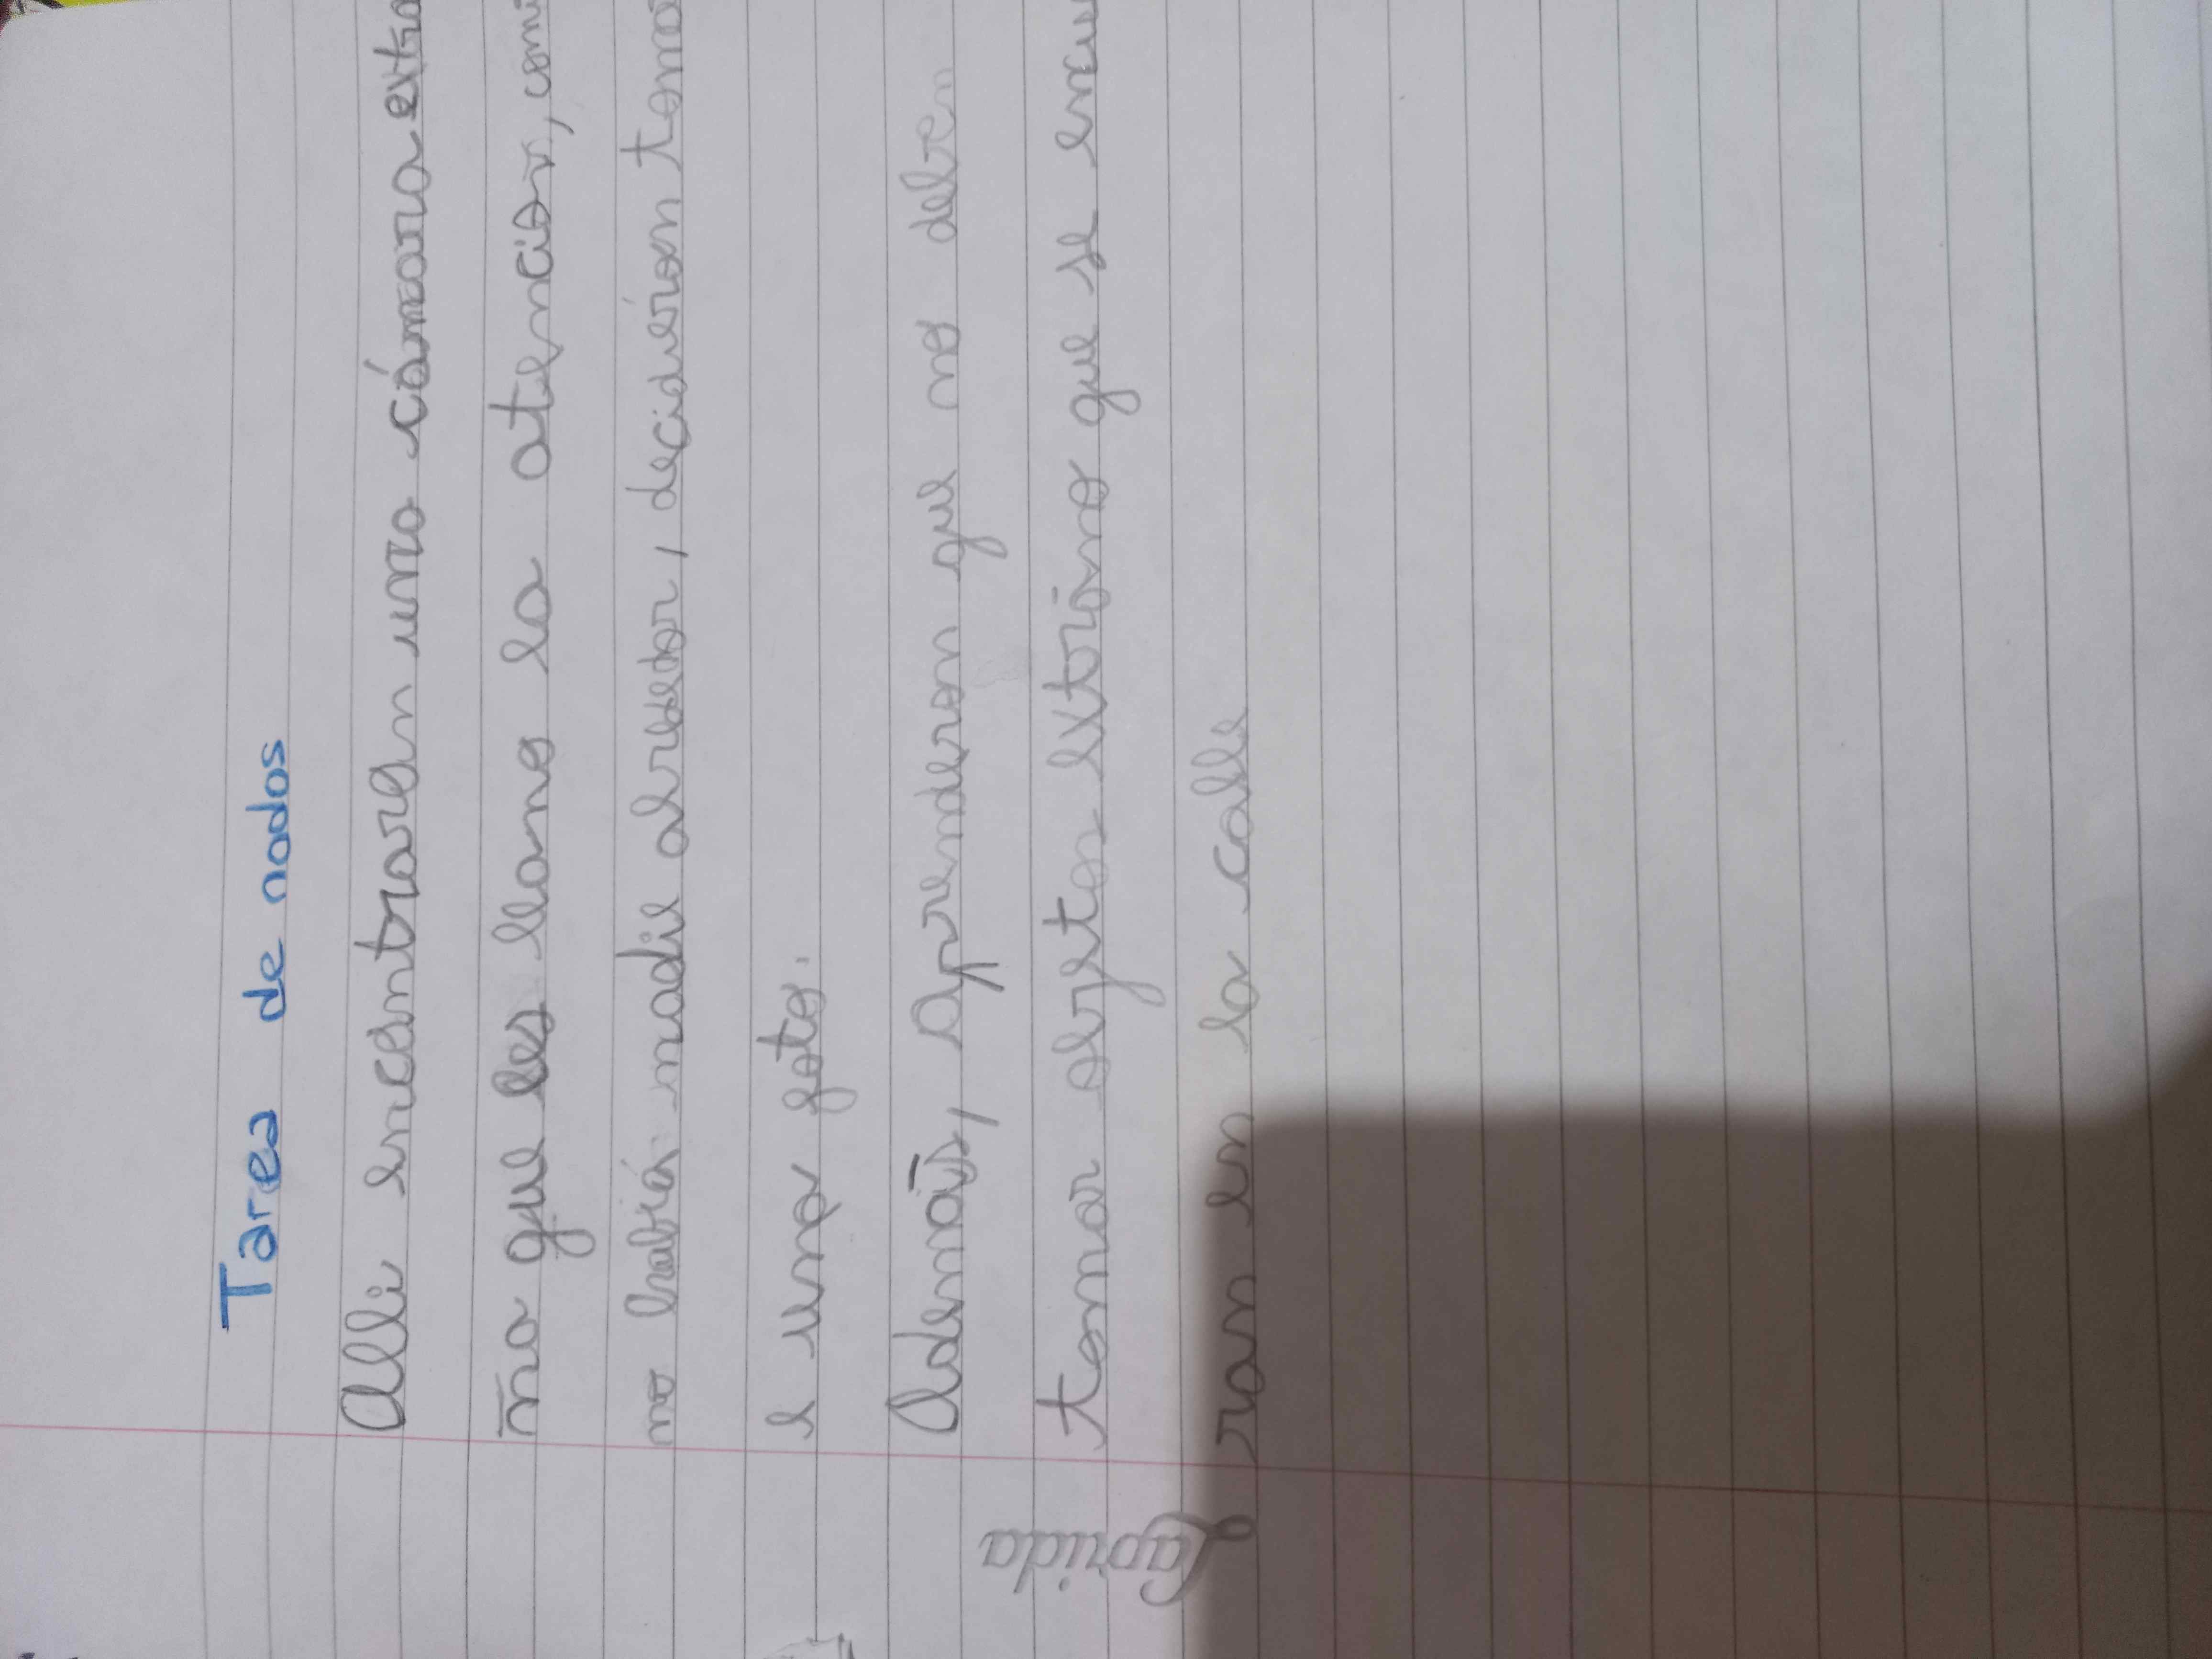 Tarea de nodos
Alli encontraron una cámara extra
ña que les llamo la atencion, comi
no habiá nadie alrededor, decidierón toma
e una foto.
Además, Aprenderon que no deben
tomar objetos extraños que se encu
ran en la calle
Laprida